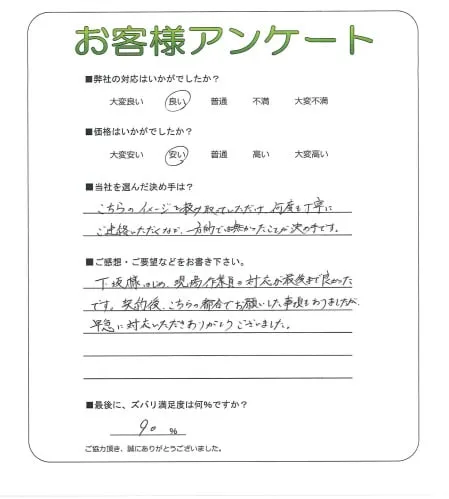 お客様アンケート
■弊社の対応はいかがでしたか？
大変良い 良い 普通 不満 大変不満
■価格はいかがでしたか？
大変安い 安い 普通 高い 大変高い
■当社を選んだ決め手は？
こちらのイメージを汲み取っていただけ 何度も丁寧に
ご連絡いただくなど、一方的では無かったことが決め手です。
■ご感想・ご要望などをお書き下さい。
下坂様はじめ、現場作業員の対応が最後まで良かった
です。契約後、こちらの都合でお願いした事項もありましたが、
早急に対応いただきありがとうございました。
■最後に、ズバリ満足度は何％ですか？
90 ％
ご協力頂き、誠にありがとうございました。